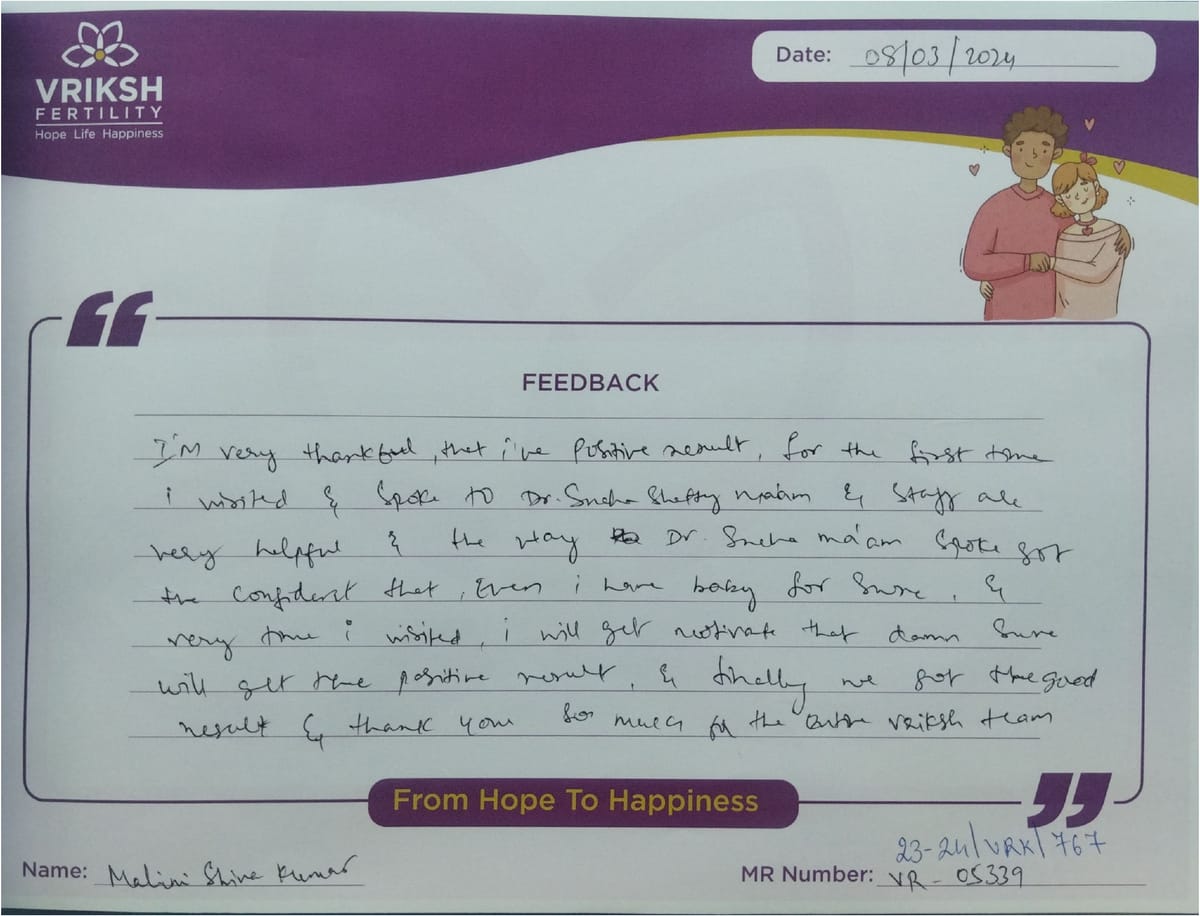 VRIKSH
FERTILITY
Hope Life Happiness
Date: 08/03/2024
FEEDBACK
I'm very thankful, that i've Positive result, for the first time
i visited & Spoke to Dr. Sneha Shetty ma'am & Staff are
very helpful & the way Dr. Sneha ma'am Spoke got
the Confident that, Even i have baby for Sure, &
very time i visited, i will get motivate that damn Sure
will get the positive result, & finally we got the good
result & thank you so much for the entire vriksh team
From Hope To Happiness
23-24/VRK/767
Name: Malini Shiva Kumar
MR Number: VR - 05339